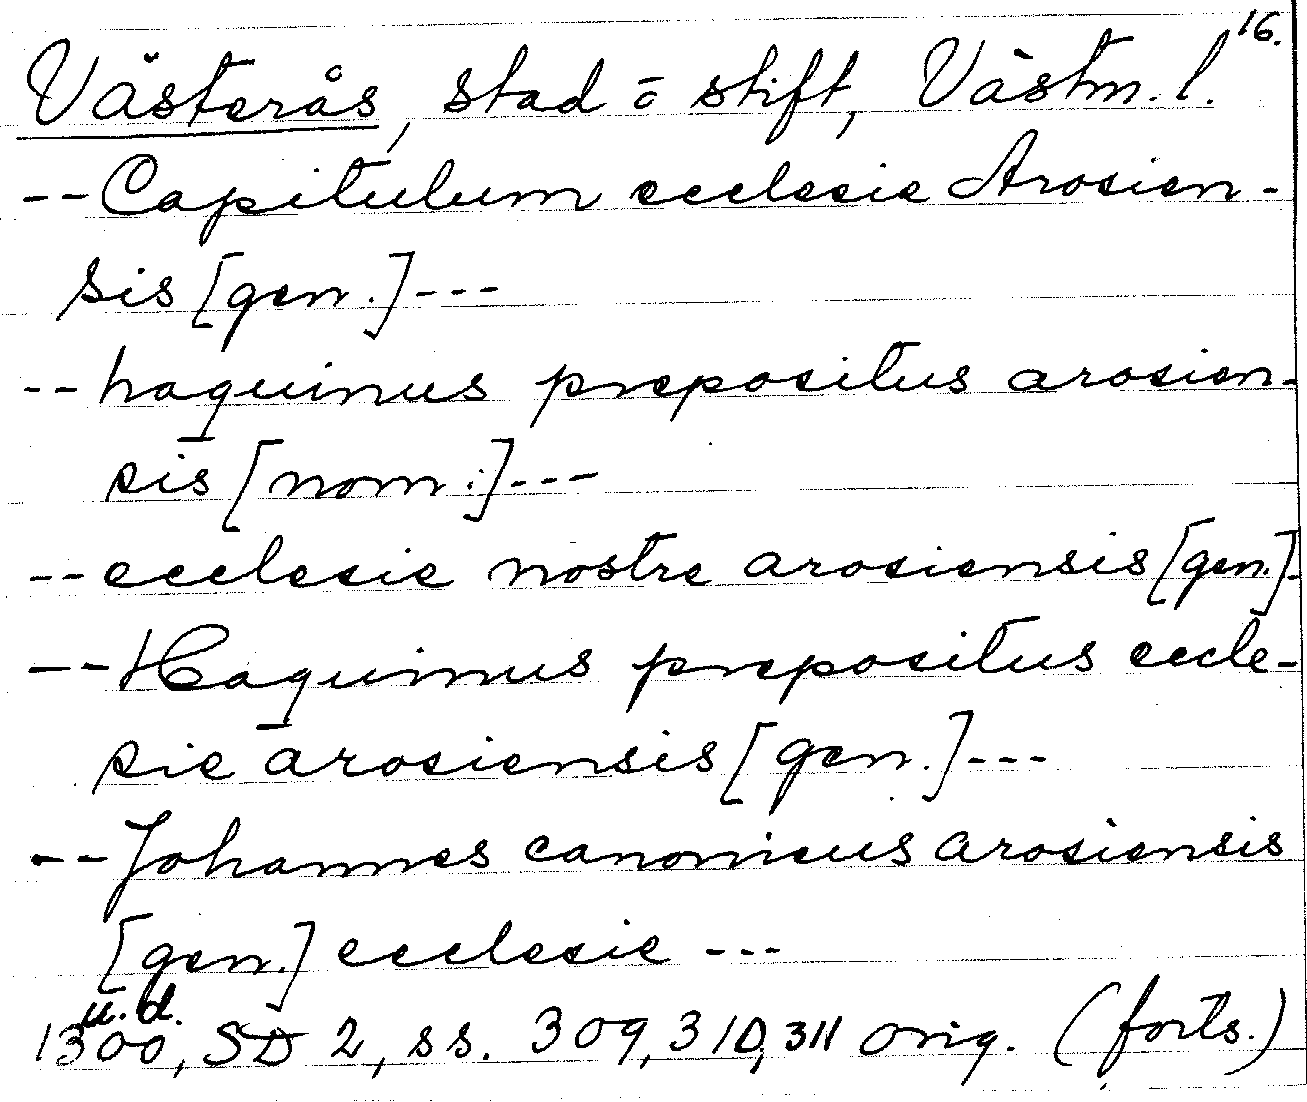 16.
Västerås, stad o stift, Västm. l.
--Capitulum ecclesie Arosien-
sis [gen.]---
--haquinus prepositus arosien-
sis [nom.]---
--ecclesie nostre arosiensis [gen.]-
--Haquinus prepositus eccle-
sie arosiensis [gen.]---
--Johannes canonicus arosiensis
[gen.] ecclesie ---
u.d.
1300, SD 2, ss. 309, 310, 311 orig. (forts.)